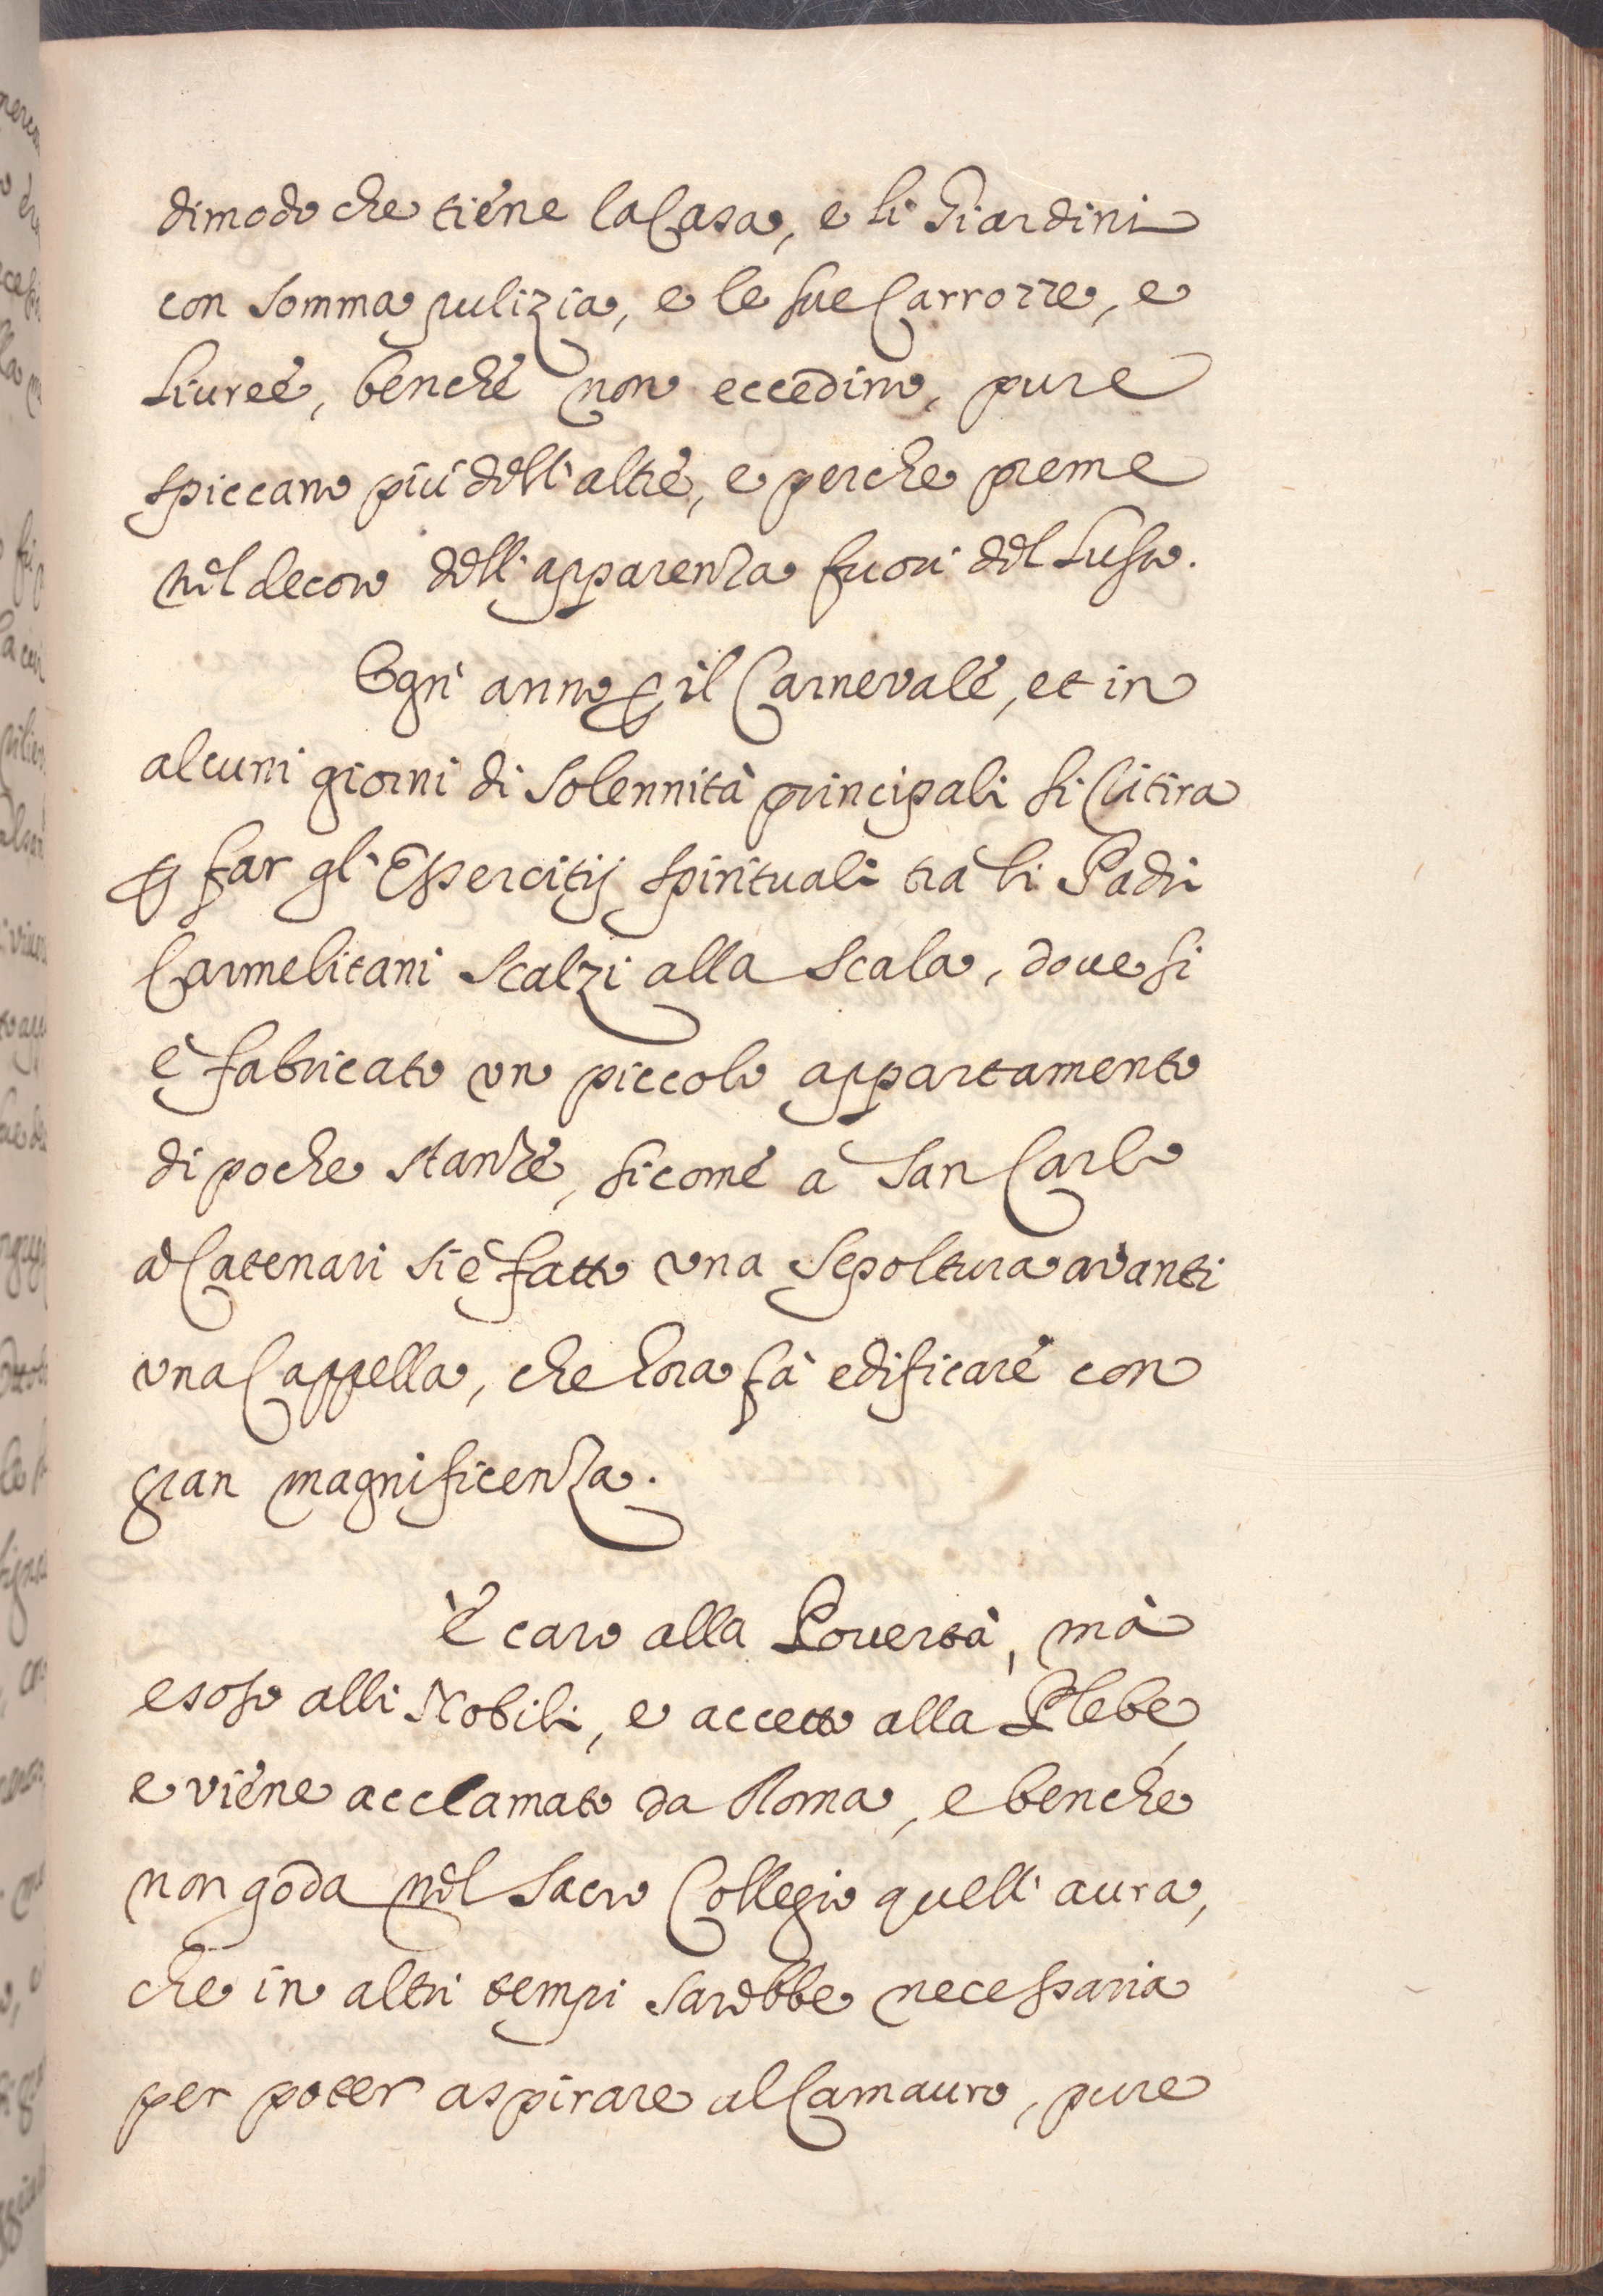 dimodo che tiene la Casa, e li Giardini
con somma pulizia, e le sue Carrozze, e
Liuree, benche non eccedino, pure
spiccano più dell'altre, e perche preme
nel decoro dell'apparenza fuori del Lusso.
Ogni anno per il Carnevale, et in
alcuni giorni di solennità principali si ritira
per far gl'Essercitij spirituali trà li Padri
Carmelitani Scalzi alla Scala, doue si
è fabricato un piccolo appartamento
di poche stanze, sicome à San Carlo
à Catenari si è fatto una Sepoltura avanti
una Cappella, che hora fà edificare con
gran magnificenza.
È caro alla Pouertà, mà
esoso alli Nobili, e accetto alla Plebe,
e viene acclamato da Roma, e benche
non goda nel Sacro Collegio quell'aura,
che in altri tempi sarebbe necessaria
per poter aspirare al Camauro, pure